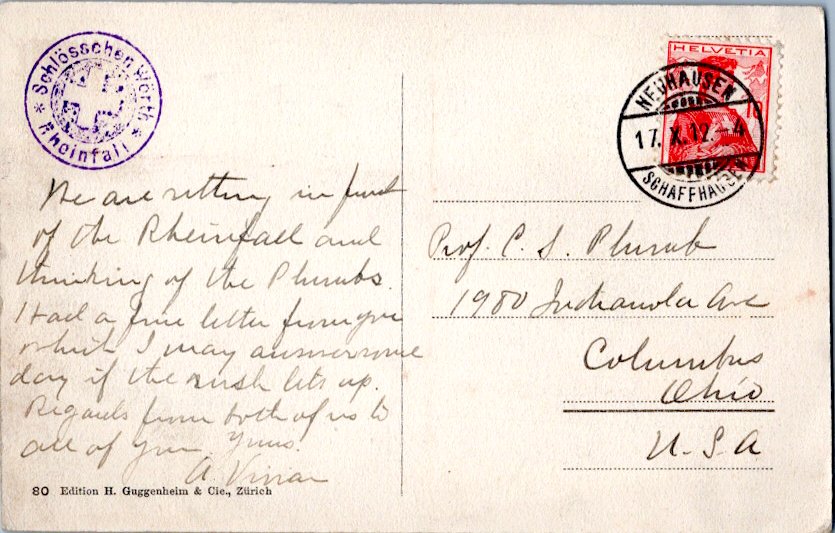 * Schlösschen Wörth *
Rheinfall
HELVETIA
10
NEUHAUSEN
17. X. 12. – 4
SCHAFFHAUSEN
We are sitting in front
of the Rheinfall and
thinking of the Plumbs.
Had a fine letter from you
which I may answer some
day if the rush lets up.
Regards from both of us to
all of you. Yours.
A.
Prof. C. S. Plumb
1980 Indianola Ave
Columbus
Ohio
U. S. A
80 Edition H. Guggenheim & Cie., Zürich